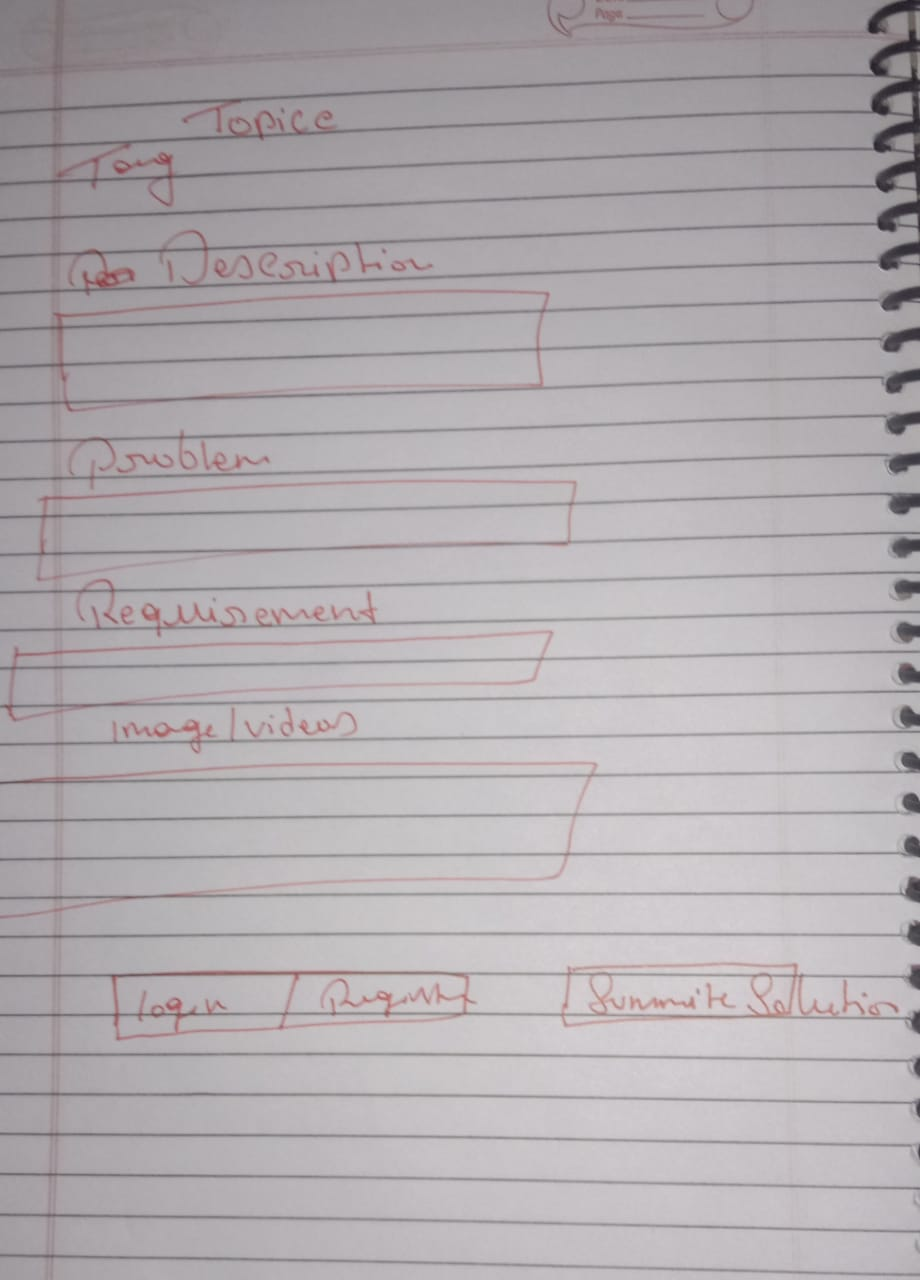 Page
Topice
Tang
Description
Problem
Requirement
Image/videos
login / Register
Summite Sollution